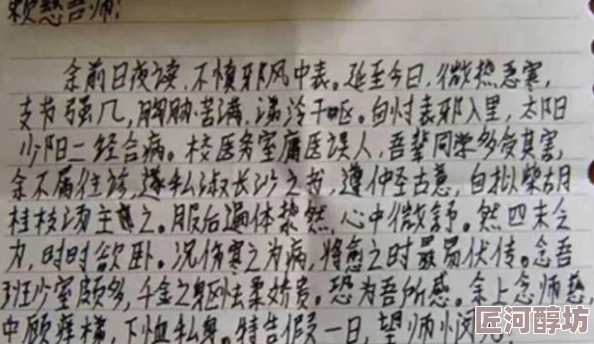 慈吾师:
余前日夜读,不慎邪风中表。延至今日,微热恶寒,
支节强几,胸胁苦满,涕泠干呕。自忖表邪入里,太阳
少阳二经合病。校医务室庸医误人,吾辈同学多受其害,
余不屑往诊,遂私淑长沙之书,遵仲圣古意,自拟柴胡
桂枝汤主之。服后遍体漐然,心中微舒。然四末乏
力,时时欲卧。况伤寒之为病,将愈之时最易伏传。念吾
班少室颇多,千金之躯怯柔娇贵。恐为吾所感。余上念师慈,
中顾,下恤私身。特告假一日,望师
匠河醇坊